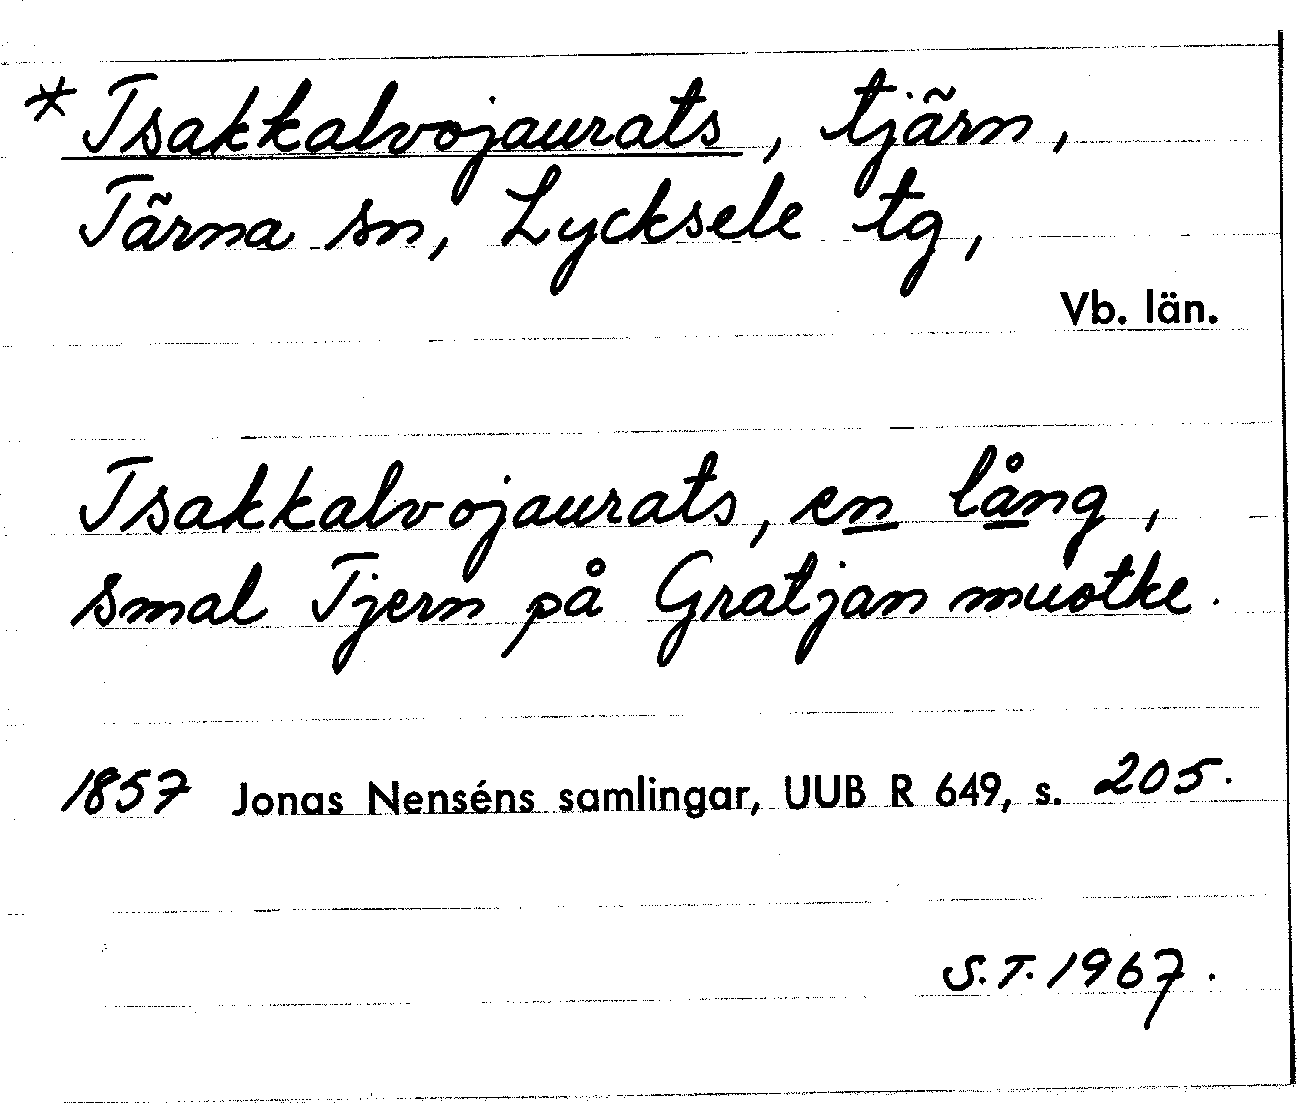 * Tsakkalvojaurats, tjärn,
Tärna sn, Lycksele tg,
Vb. län.
Tsakkalvojaurats, en lång,
smal Tjern på Gratjan muotke.
1857 Jonas Nenséns samlingar, UUB R 649, s. 205.
S.T. 1967.